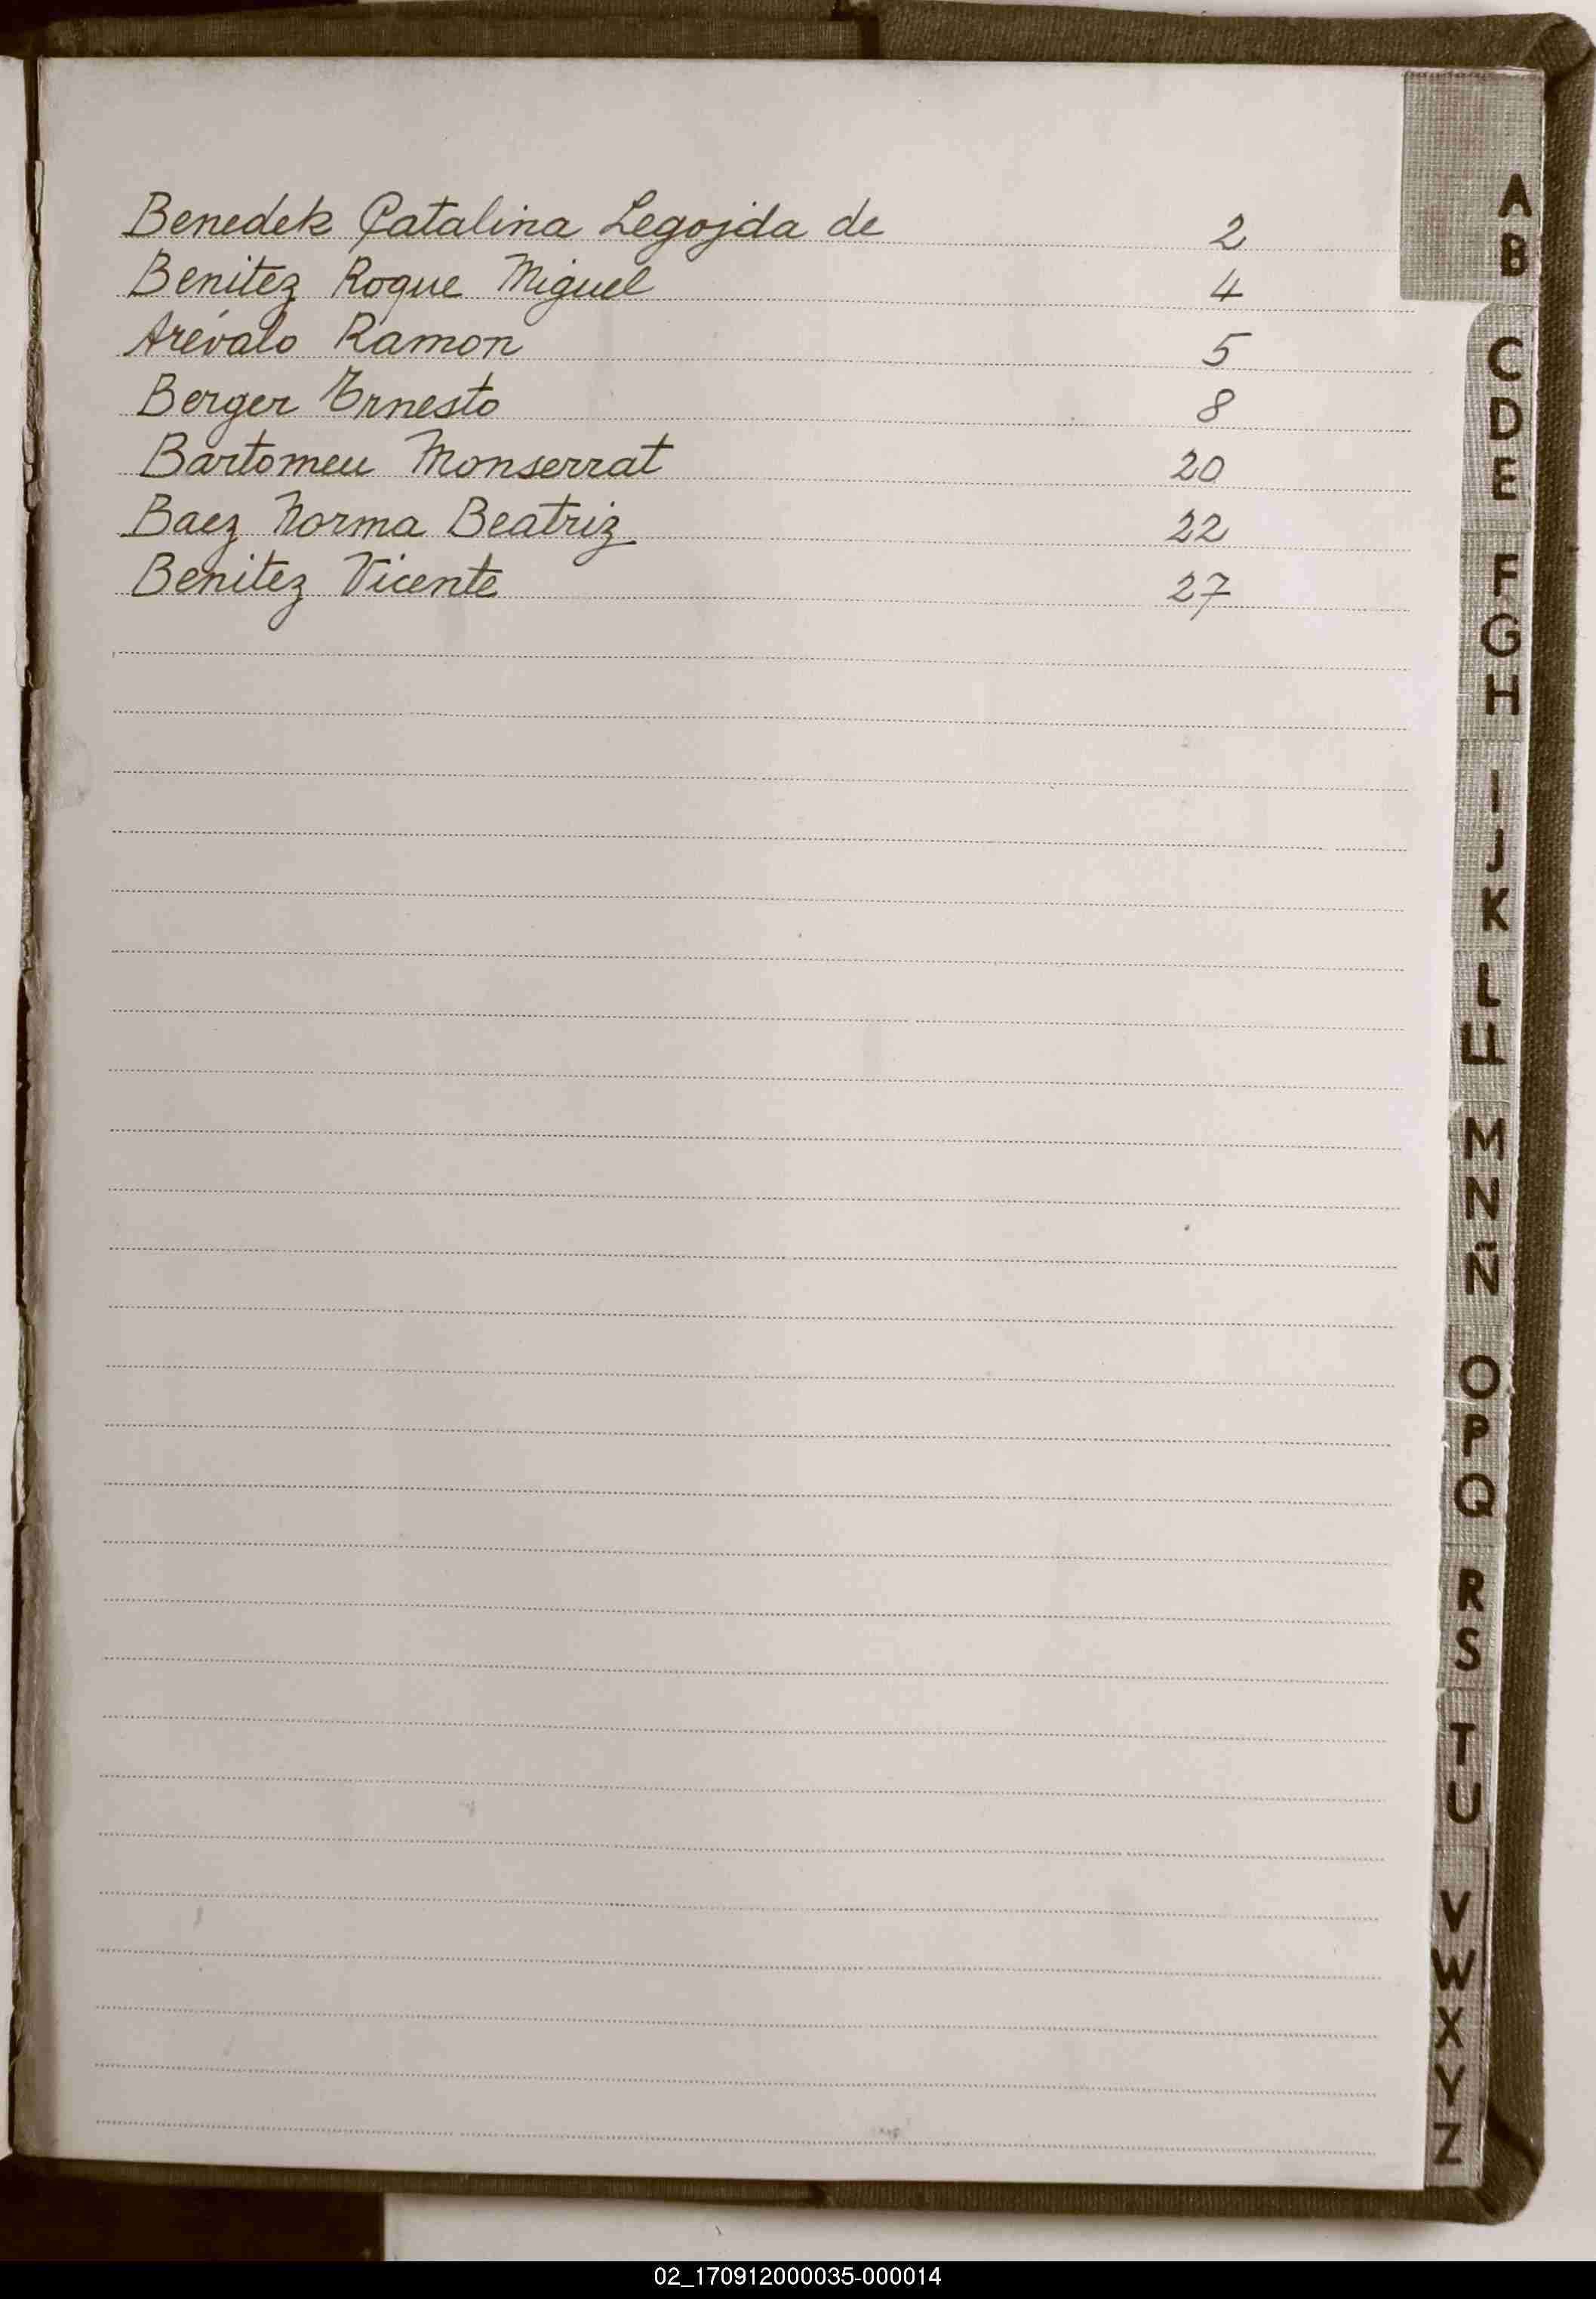 Benedek Catalina Legojda de 2
Benitez Roque Miguel 4
Arévalo Ramon 5
Berger Ernesto 8
Bartomeu Monserrat 20
Baez Norma Beatriz 22
Benitez Vicente 27
A
B
C
D
E
F
G
H
I
J
K
L
LL
M
N
Ñ
O
P
Q
R
S
T
U
V
W
X
Y
Z
02_170912000035-000014